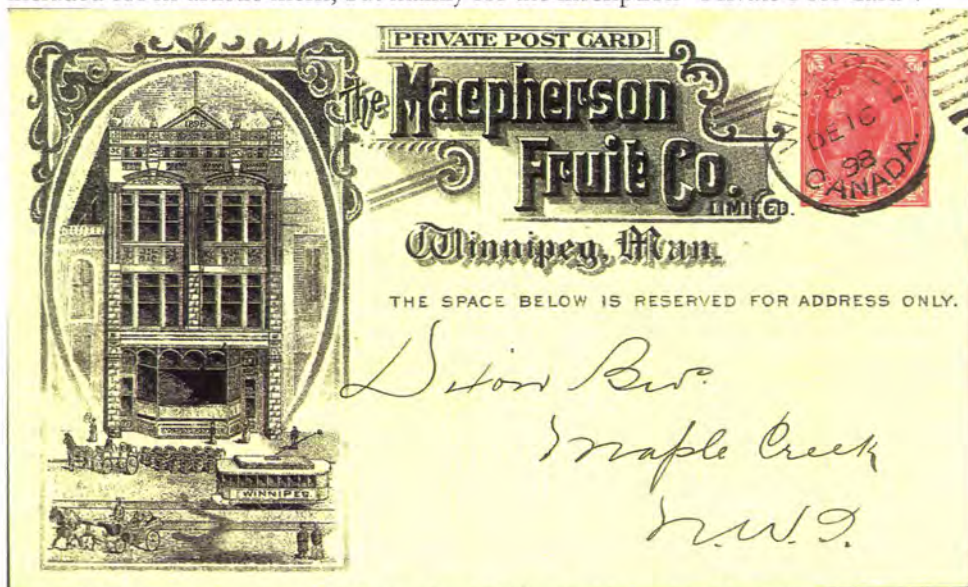 PRIVATE POST CARD
The Macpherson
Fruit Co.
LIMITED.
Winnipeg, Man.
DE 10
98
CANADA.
THE SPACE BELOW IS RESERVED FOR ADDRESS ONLY.
Dixon Bros.
Maple Creek
N.W.T.
WINNIPEG